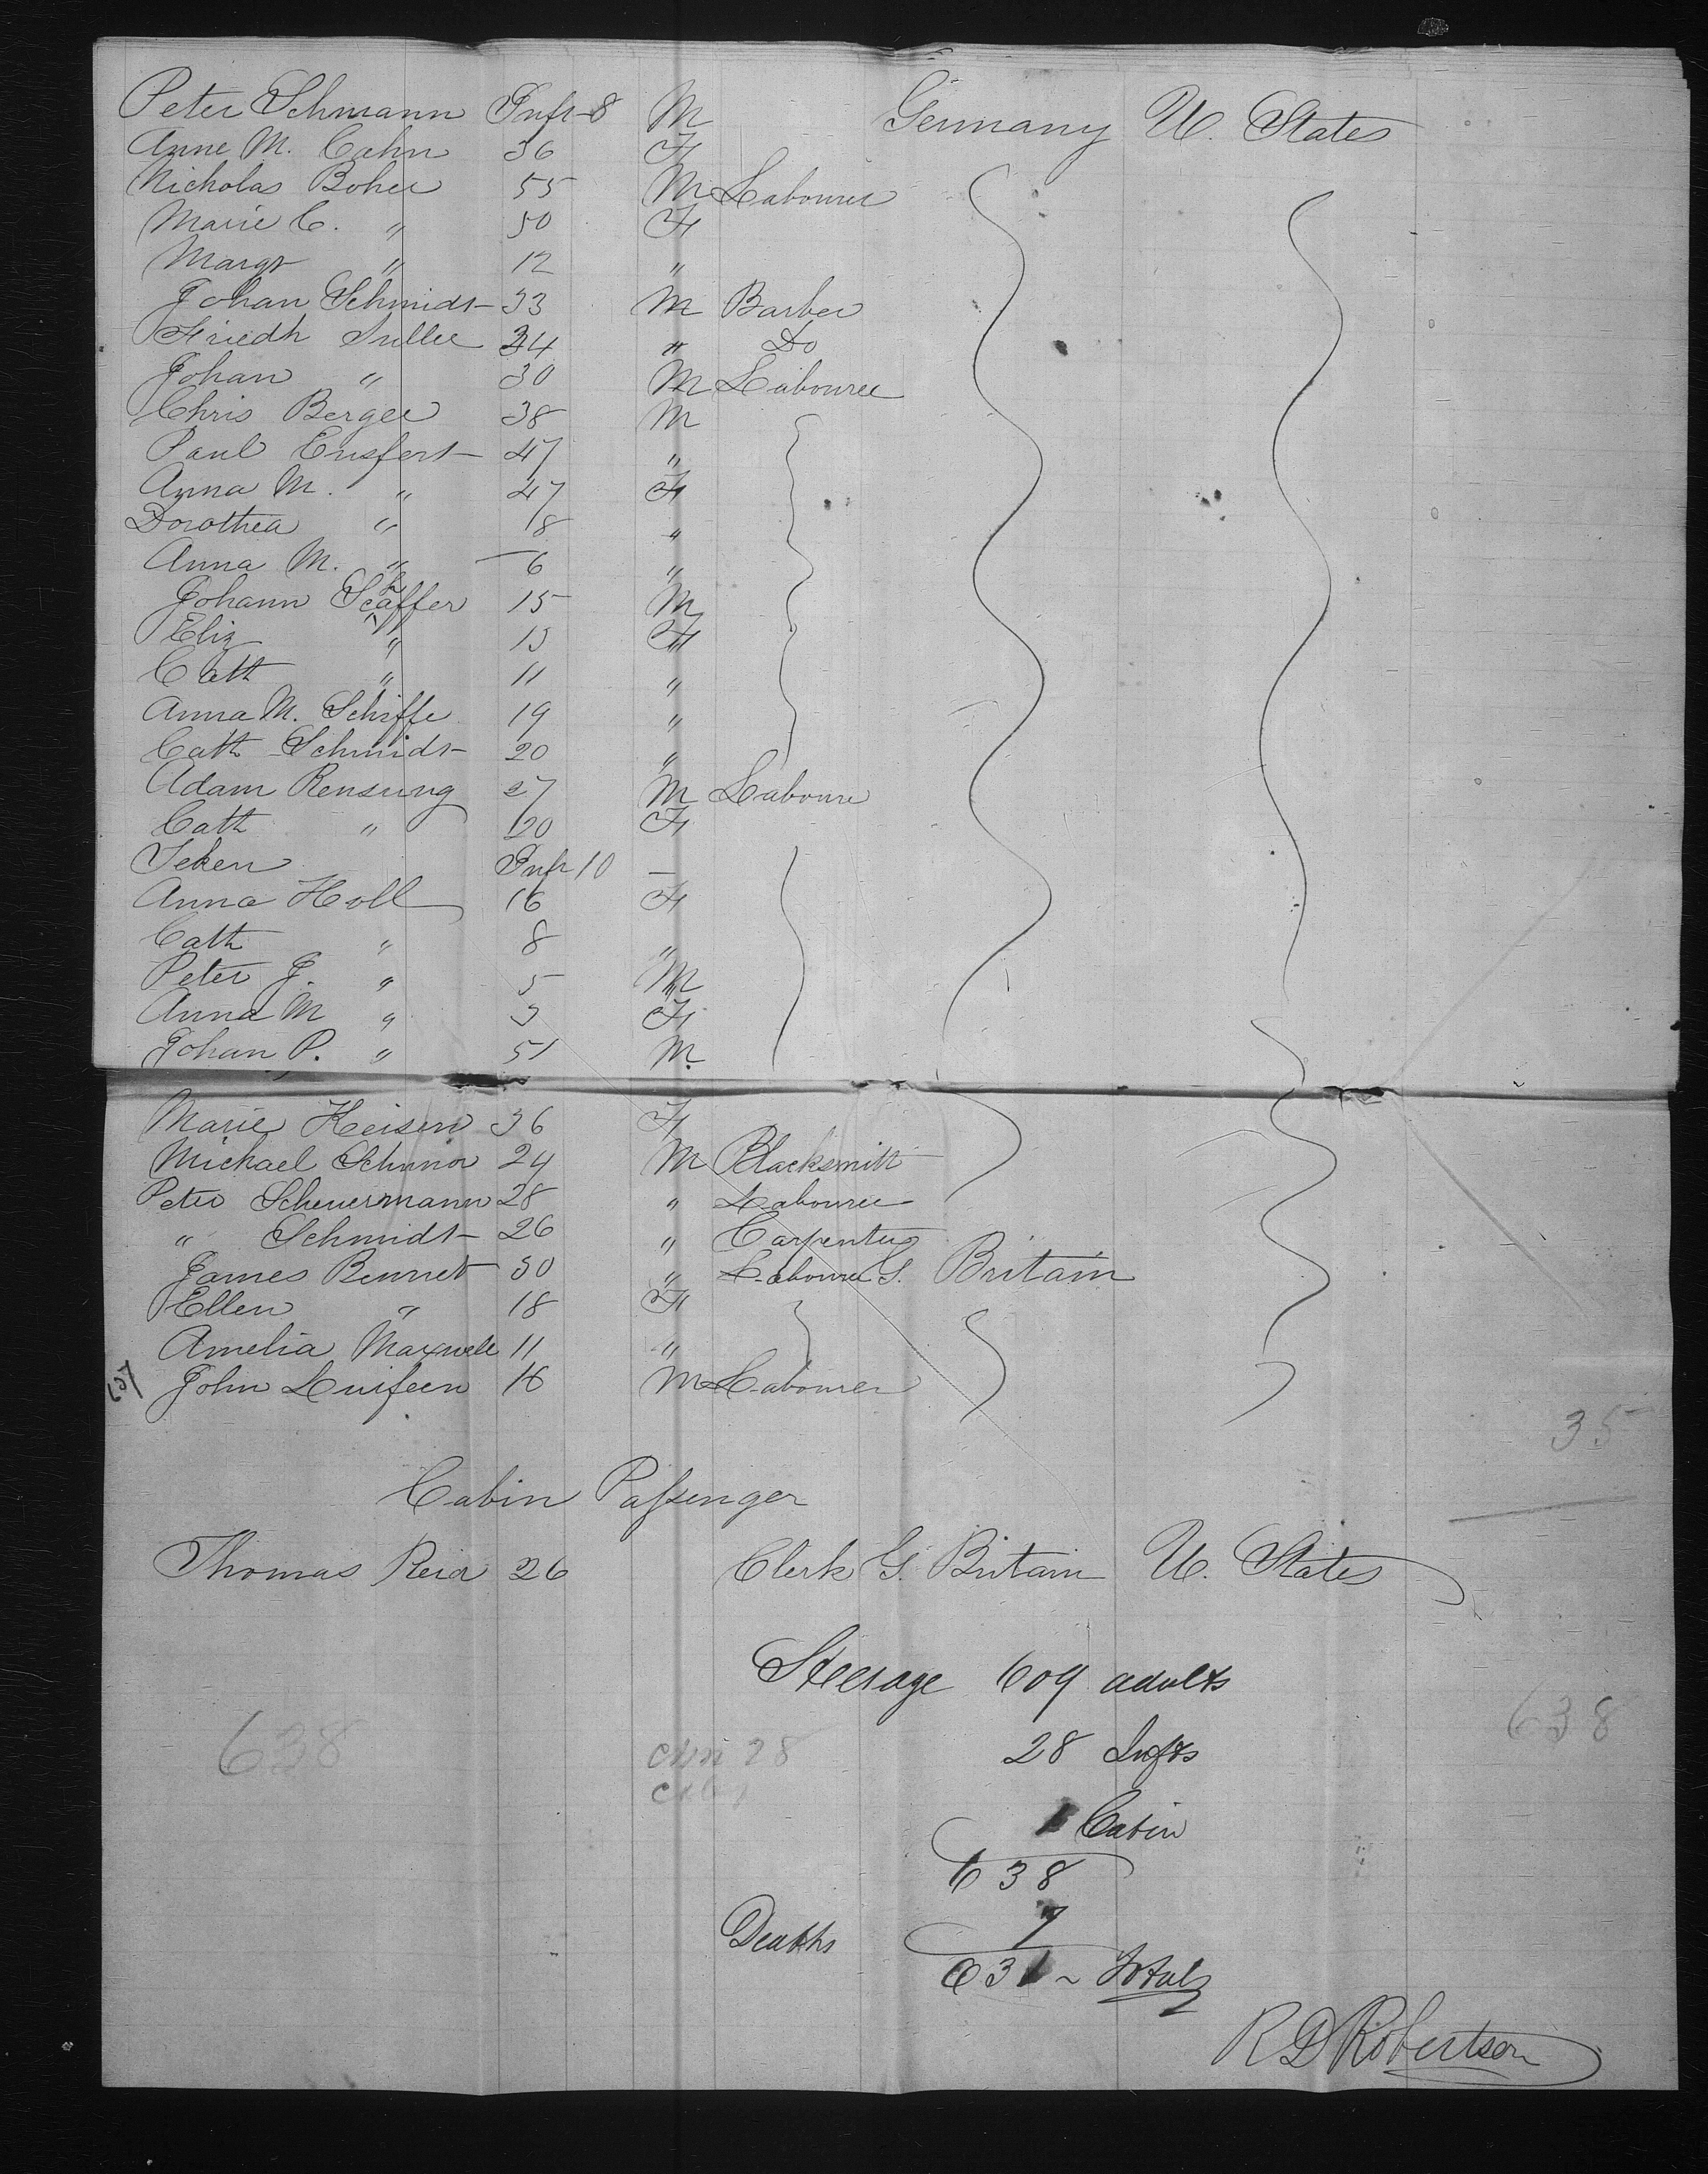 Peter Schmann Inft-8 M Germany U. States
Anne M. Cahn 36 F
Nicholas Boher 55 M Labourer
Marie C. " 50 F
Margt " 12 "
Johan Schmidt 33 M Barber
Friedh Suller 34 " Do
Johan " 30 M Labourer
Chris Berger 38 M
Paul Ensfert 47 "
Anna M. " 47 F
Dorothea " 18 "
Anna M. " 6 "
Johann Schaffer 15 M
Eliz " 13 F
Cath " 11 "
Anna M. Schiffe 19 "
Cath Schmidt 20 "
Adam Rensung 27 M Laboure
Cath " 20 F
Seken Inft 10 —
Anna Holl 16 F
Cath " 8 "
Peter J. " 5 M
Anna M " 3 F
Johan P. " 51 M.
Marie Keisen 36 F
Michael Schnor 24 M Blacksmith
Peter Scheuermann 28 " Labourer
" Schmidt 26 " Carpenter
James Bennet 30 " Labourer G. Britain
Ellen " 18 F
Amelia Maxwell 11 "
637 John Luifeen 16 M Labourer
35
Cabin Passenger
Thomas Reid 26 Clerk G. Britain U. States
Steerage 609 adults
638 638
28 Infts
chn 28
1 Cabin
638
Deaths 7
631 ~ Total
R D Robertson